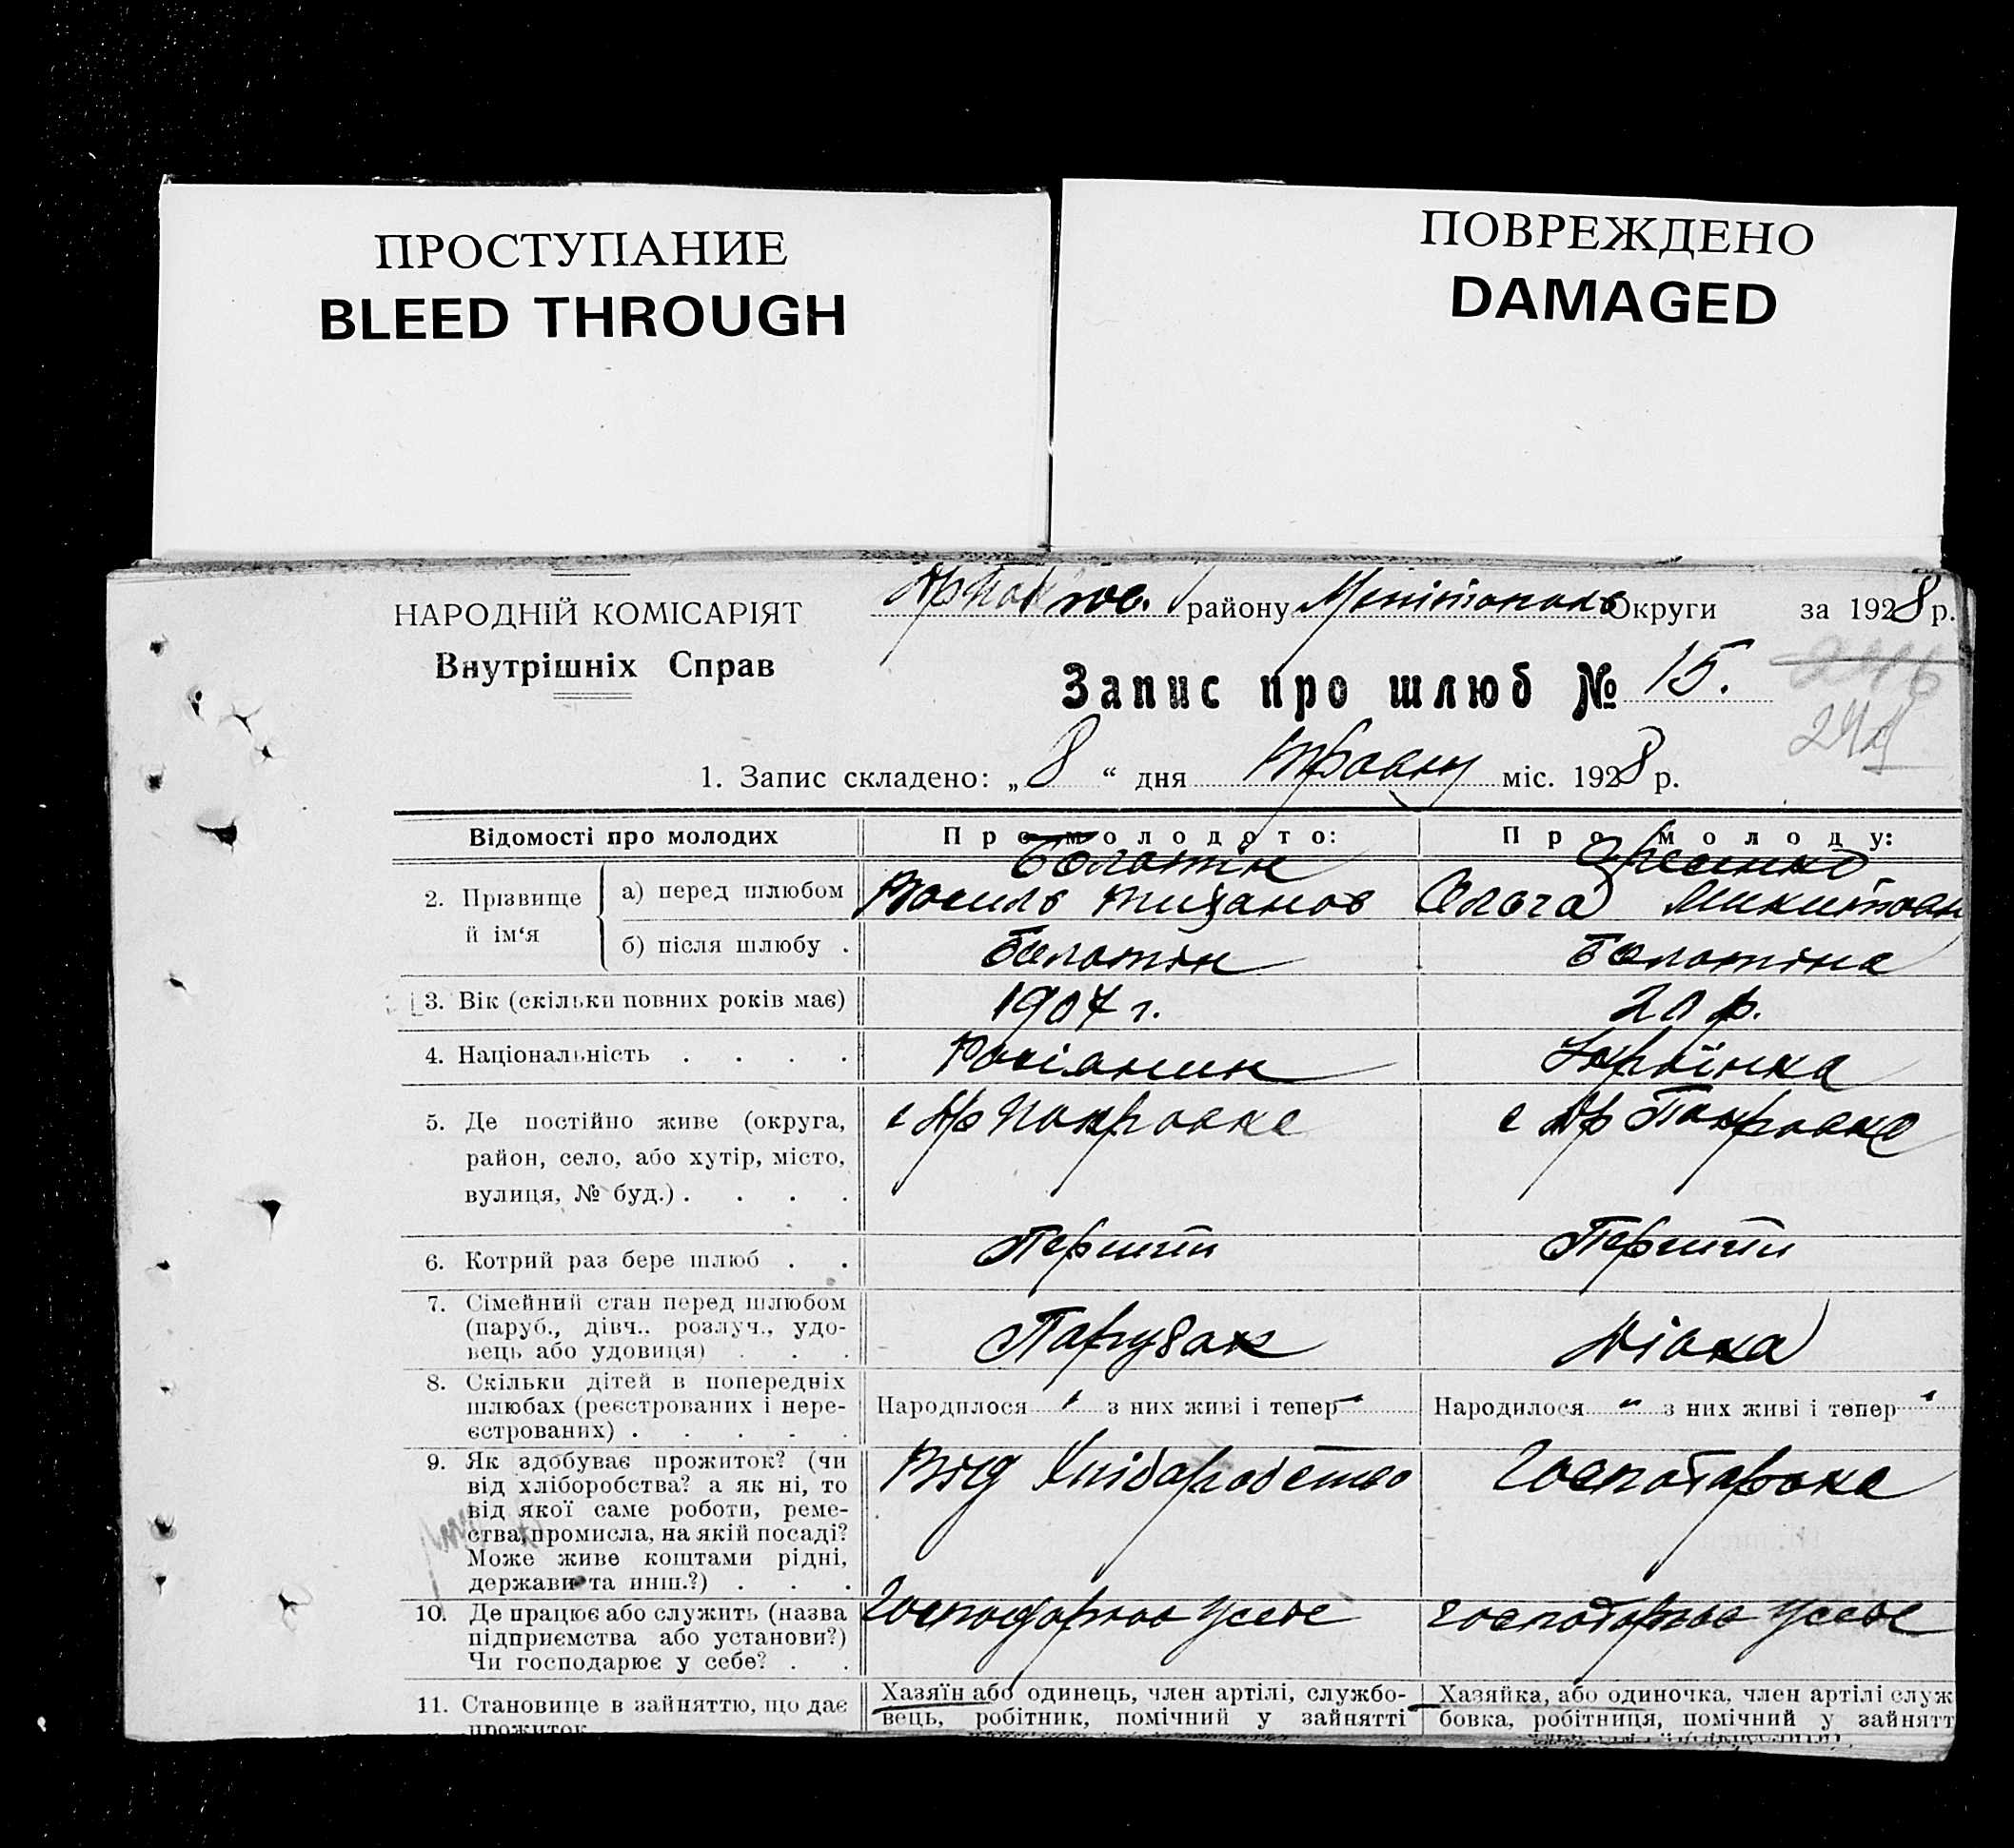 ПРОСТУПАНИЕ
BLEED THROUGH
ПОВРЕЖДЕНО
DAMAGED
НАРОДНІЙ КОМІСАРІЯТ
Внутрішніх Справ
району Мелітополь Округи за 1928 р.
Запис про шлюб № 15.
246
1. Запис складено: „ 8 “ дня Травня міс. 1928 р.
Відомості про молодих
Про молодого:
Про молоду:
2. Прізвище й ім‘я
а) перед шлюбом
Болотін
Василь
Ольга
б) після шлюбу .
Болотін
Болотіна
3. Вік (скільки повних років має)
1907 г.
20 р.
4. Національність . . . .
Росіянин
Українка
5. Де постійно живе (округа,
район, село, або хутір, місто,
вулиця, № буд.) . . . .
с Ар Покровка
с Ар Покровка
6. Котрий раз бере шлюб . .
Перший
Перший
7. Сімейний стан перед шлюбом
(паруб., дівч., розлуч., удо-
вець або удовиця) . . .
Парубок
Дівка
8. Скільки дітей в попередніх
шлюбах (реєстрованих і нере-
єстрованих) . . . . .
Народилося " з них живі і тепер "
Народилося " з них живі і тепер "
9. Як здобуває прожиток? (чи
від хліборобства? а як ні, то
від якої саме роботи, реме-
ства, промисла, на якій посаді?
Може живе коштами рідні,
держави та инш.?) . . .
Від Хліборобство
10. Де працює або служить (назва
підприємства або установи?)
Чи господарює у себе? . .
Господарює у себе
господарює у себе
11. Становище в зайняттю, що дає
прожиток
Хазяїн або одинець, член артілі, службо-
вець, робітник, помічний у зайнятті
Хазяйка, або одиночка, член артілі служ
бовка, робітниця, помічний у зайнятт